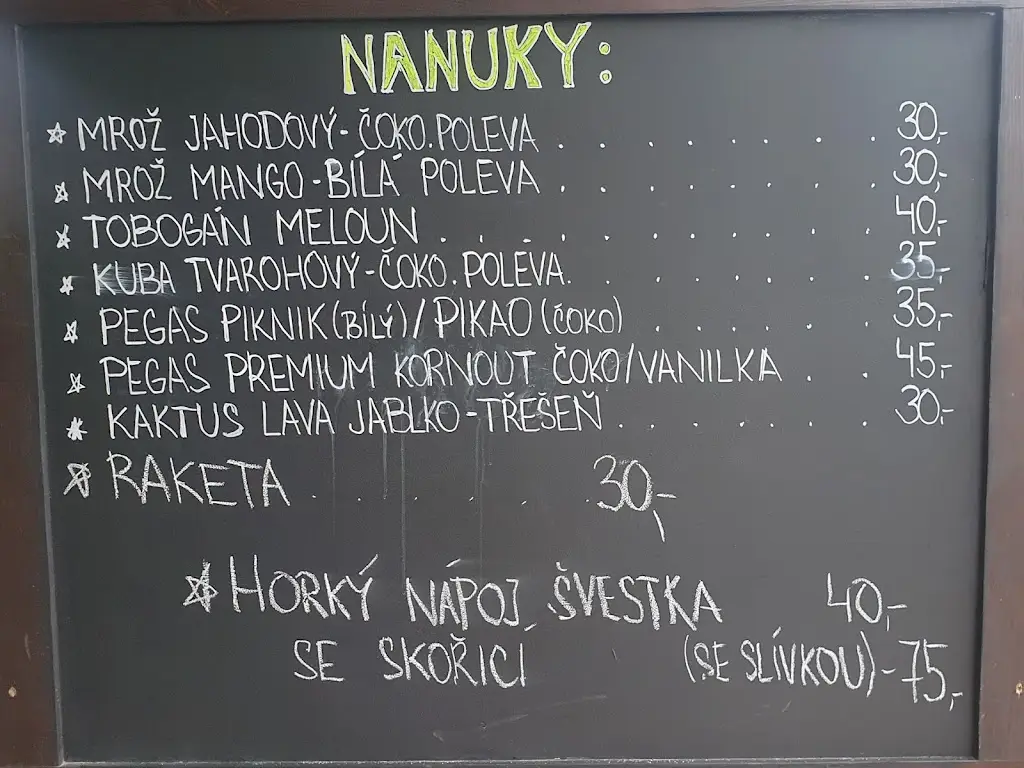 NANUKY:
☆ MROŽ JAHODOVÝ-ČOKO.POLEVA . . . . . . . . 30,-
☆ MROŽ MANGO-BÍLÁ POLEVA . . . . . . . . 30,-
☆ TOBOGÁN MELOUN . . . . . . . . . . . 40,-
☆ KUBA TVAROHOVÝ-ČOKO.POLEVA. . . . . . . . 35,-
☆ PEGAS PIKNIK(BÍLÝ)/PIKAO(ČOKO) . . . . . . 35,-
☆ PEGAS PREMIUM KORNOUT ČOKO/VANILKA . . . 45,-
☆ KAKTUS LAVA JABLKO-TŘEŠEŇ . . . . . . . 30,-
☆ RAKETA . . . . . . . 30,-
☆ HORKÝ NÁPOJ ŠVESTKA 40,-
SE SKOŘICÍ (SE SLÍVKOU)-75,-